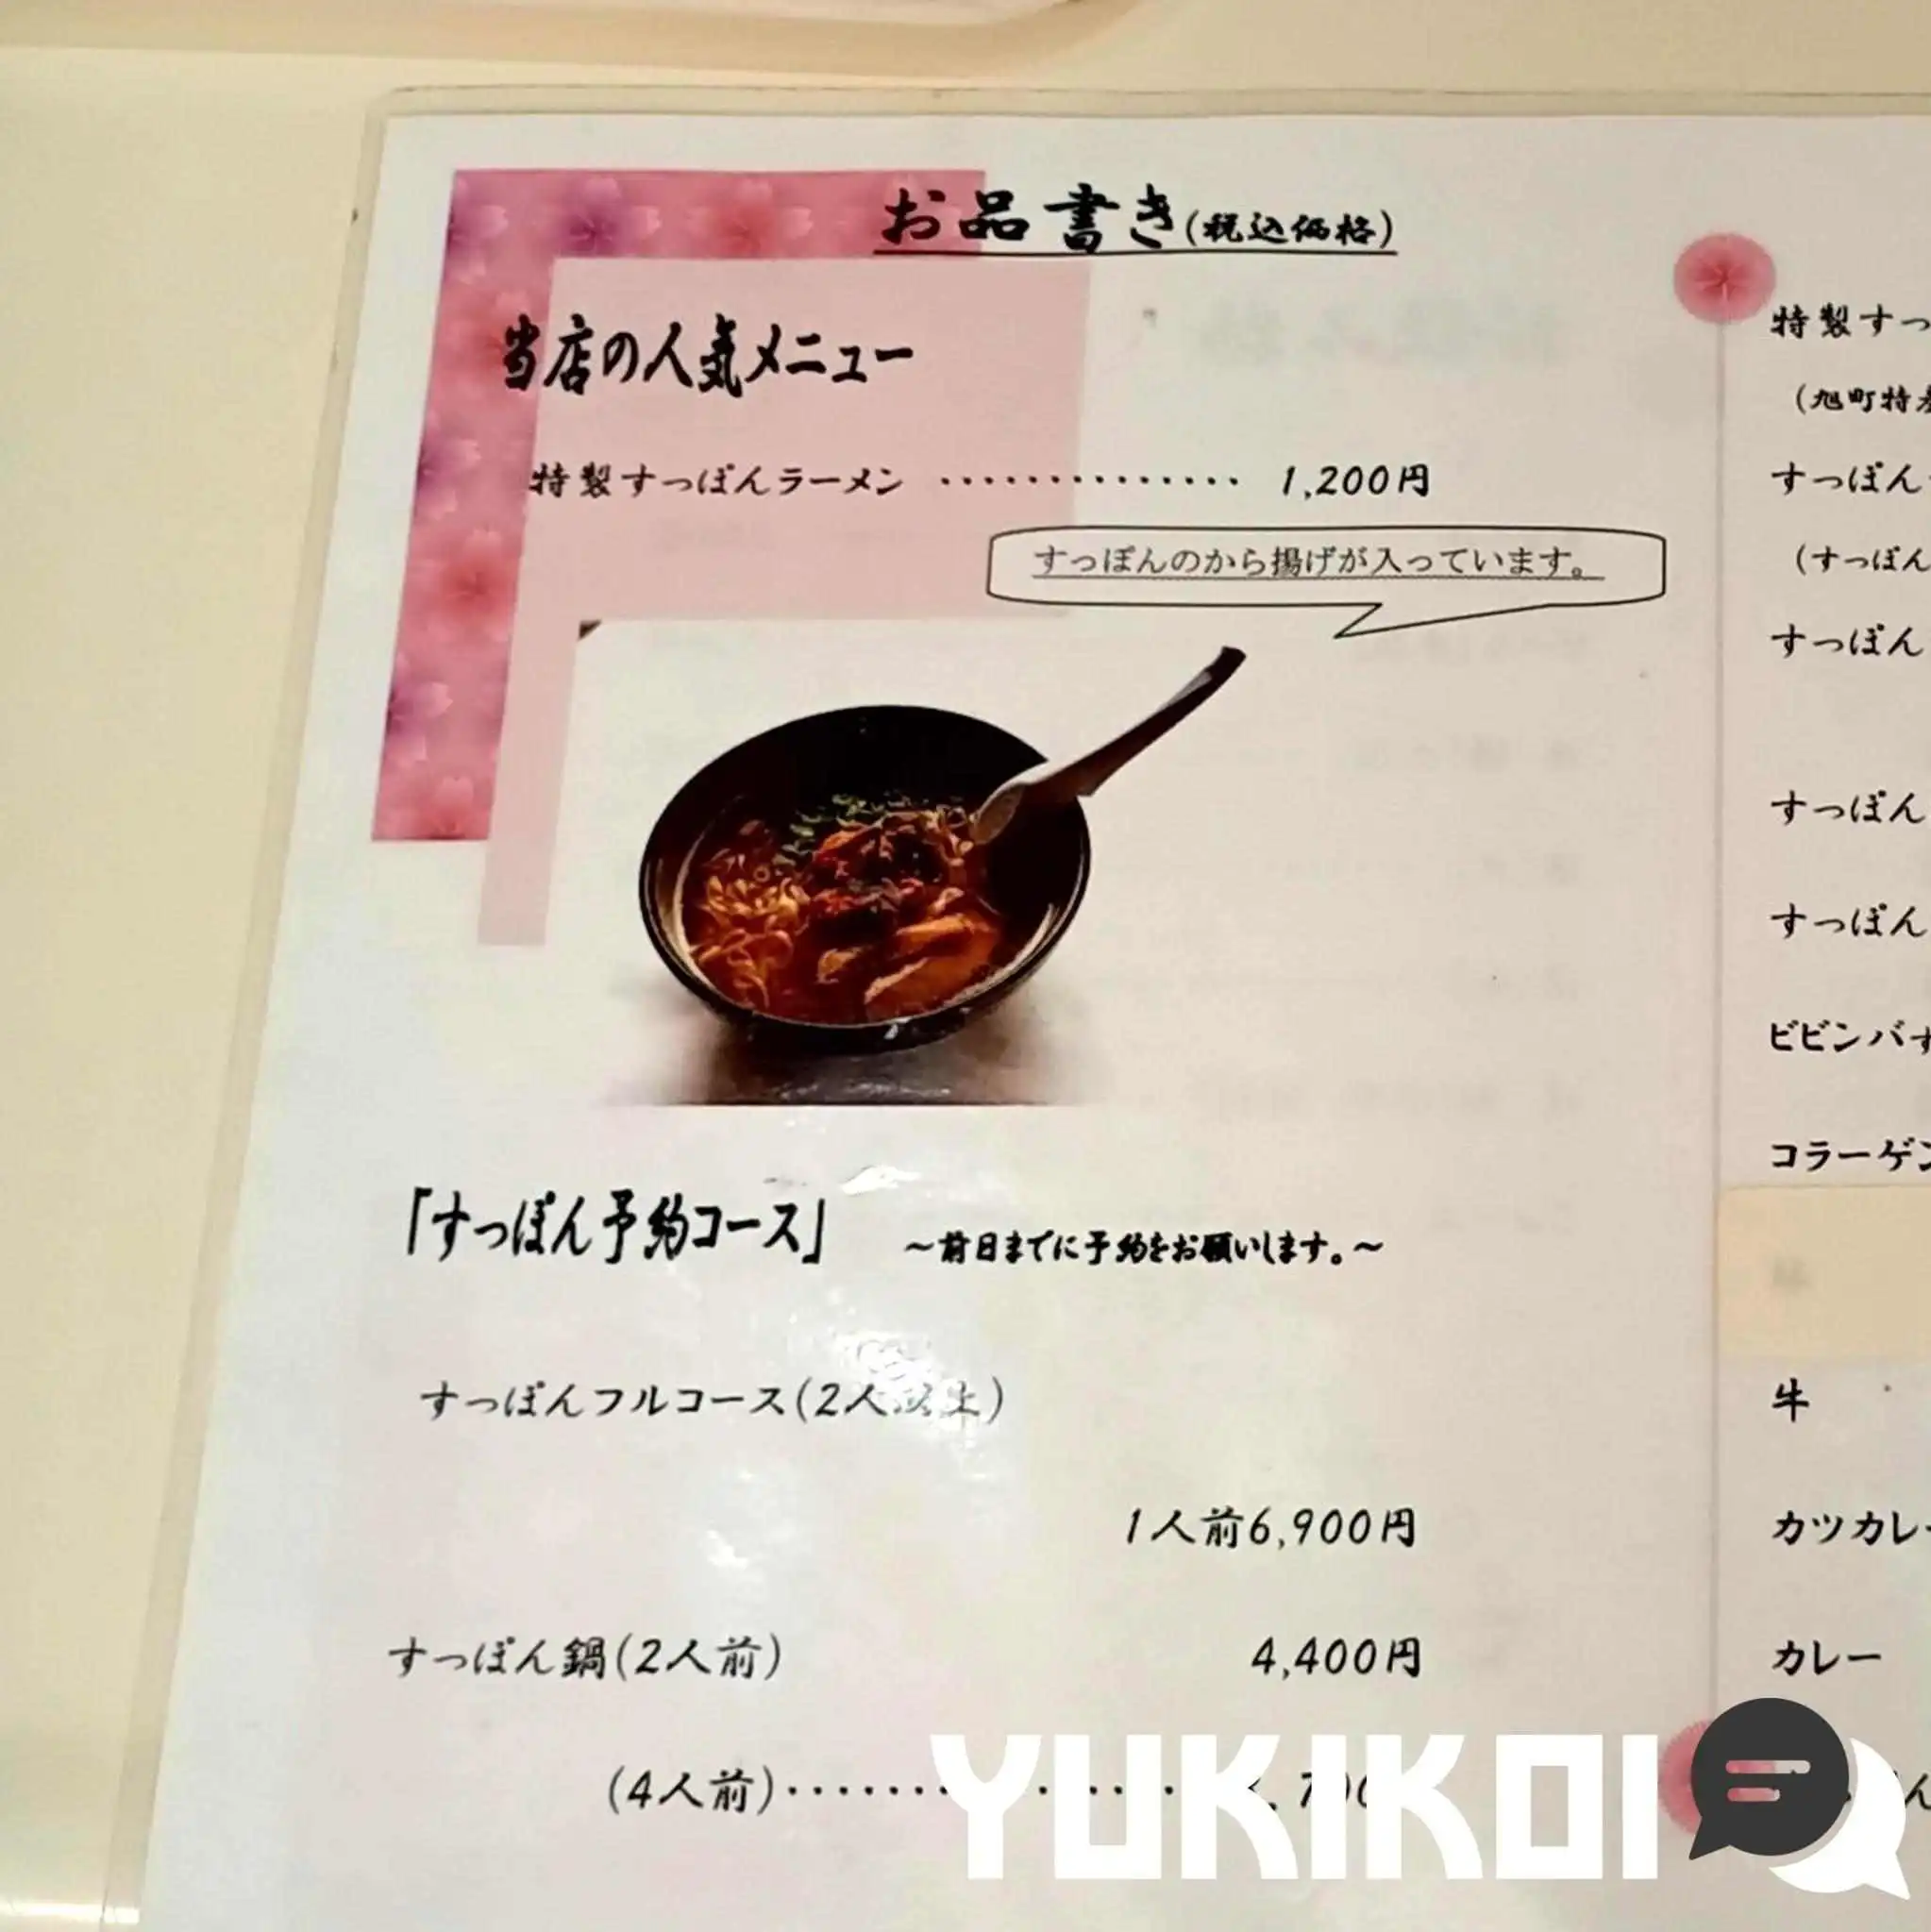 お品書き(税込価格)
当店の人気メニュー
特製すっぽんラーメン ・・・・・・・・・・・・・・ 1,200円
すっぽんのから揚げが入っています。
「すっぽん予約コース」 ～前日までに予約をお願いします。～
すっぽんフルコース(2人以上)
1人前6,900円
すっぽん鍋(2人前) 4,400円
(4人前)
特製すっ
(旭町特
すっぽん
(すっぽん
すっぽん
すっぽん
すっぽん
ビビンバす
コラーゲン
牛
カツカレー
カレー
YUKIKOI